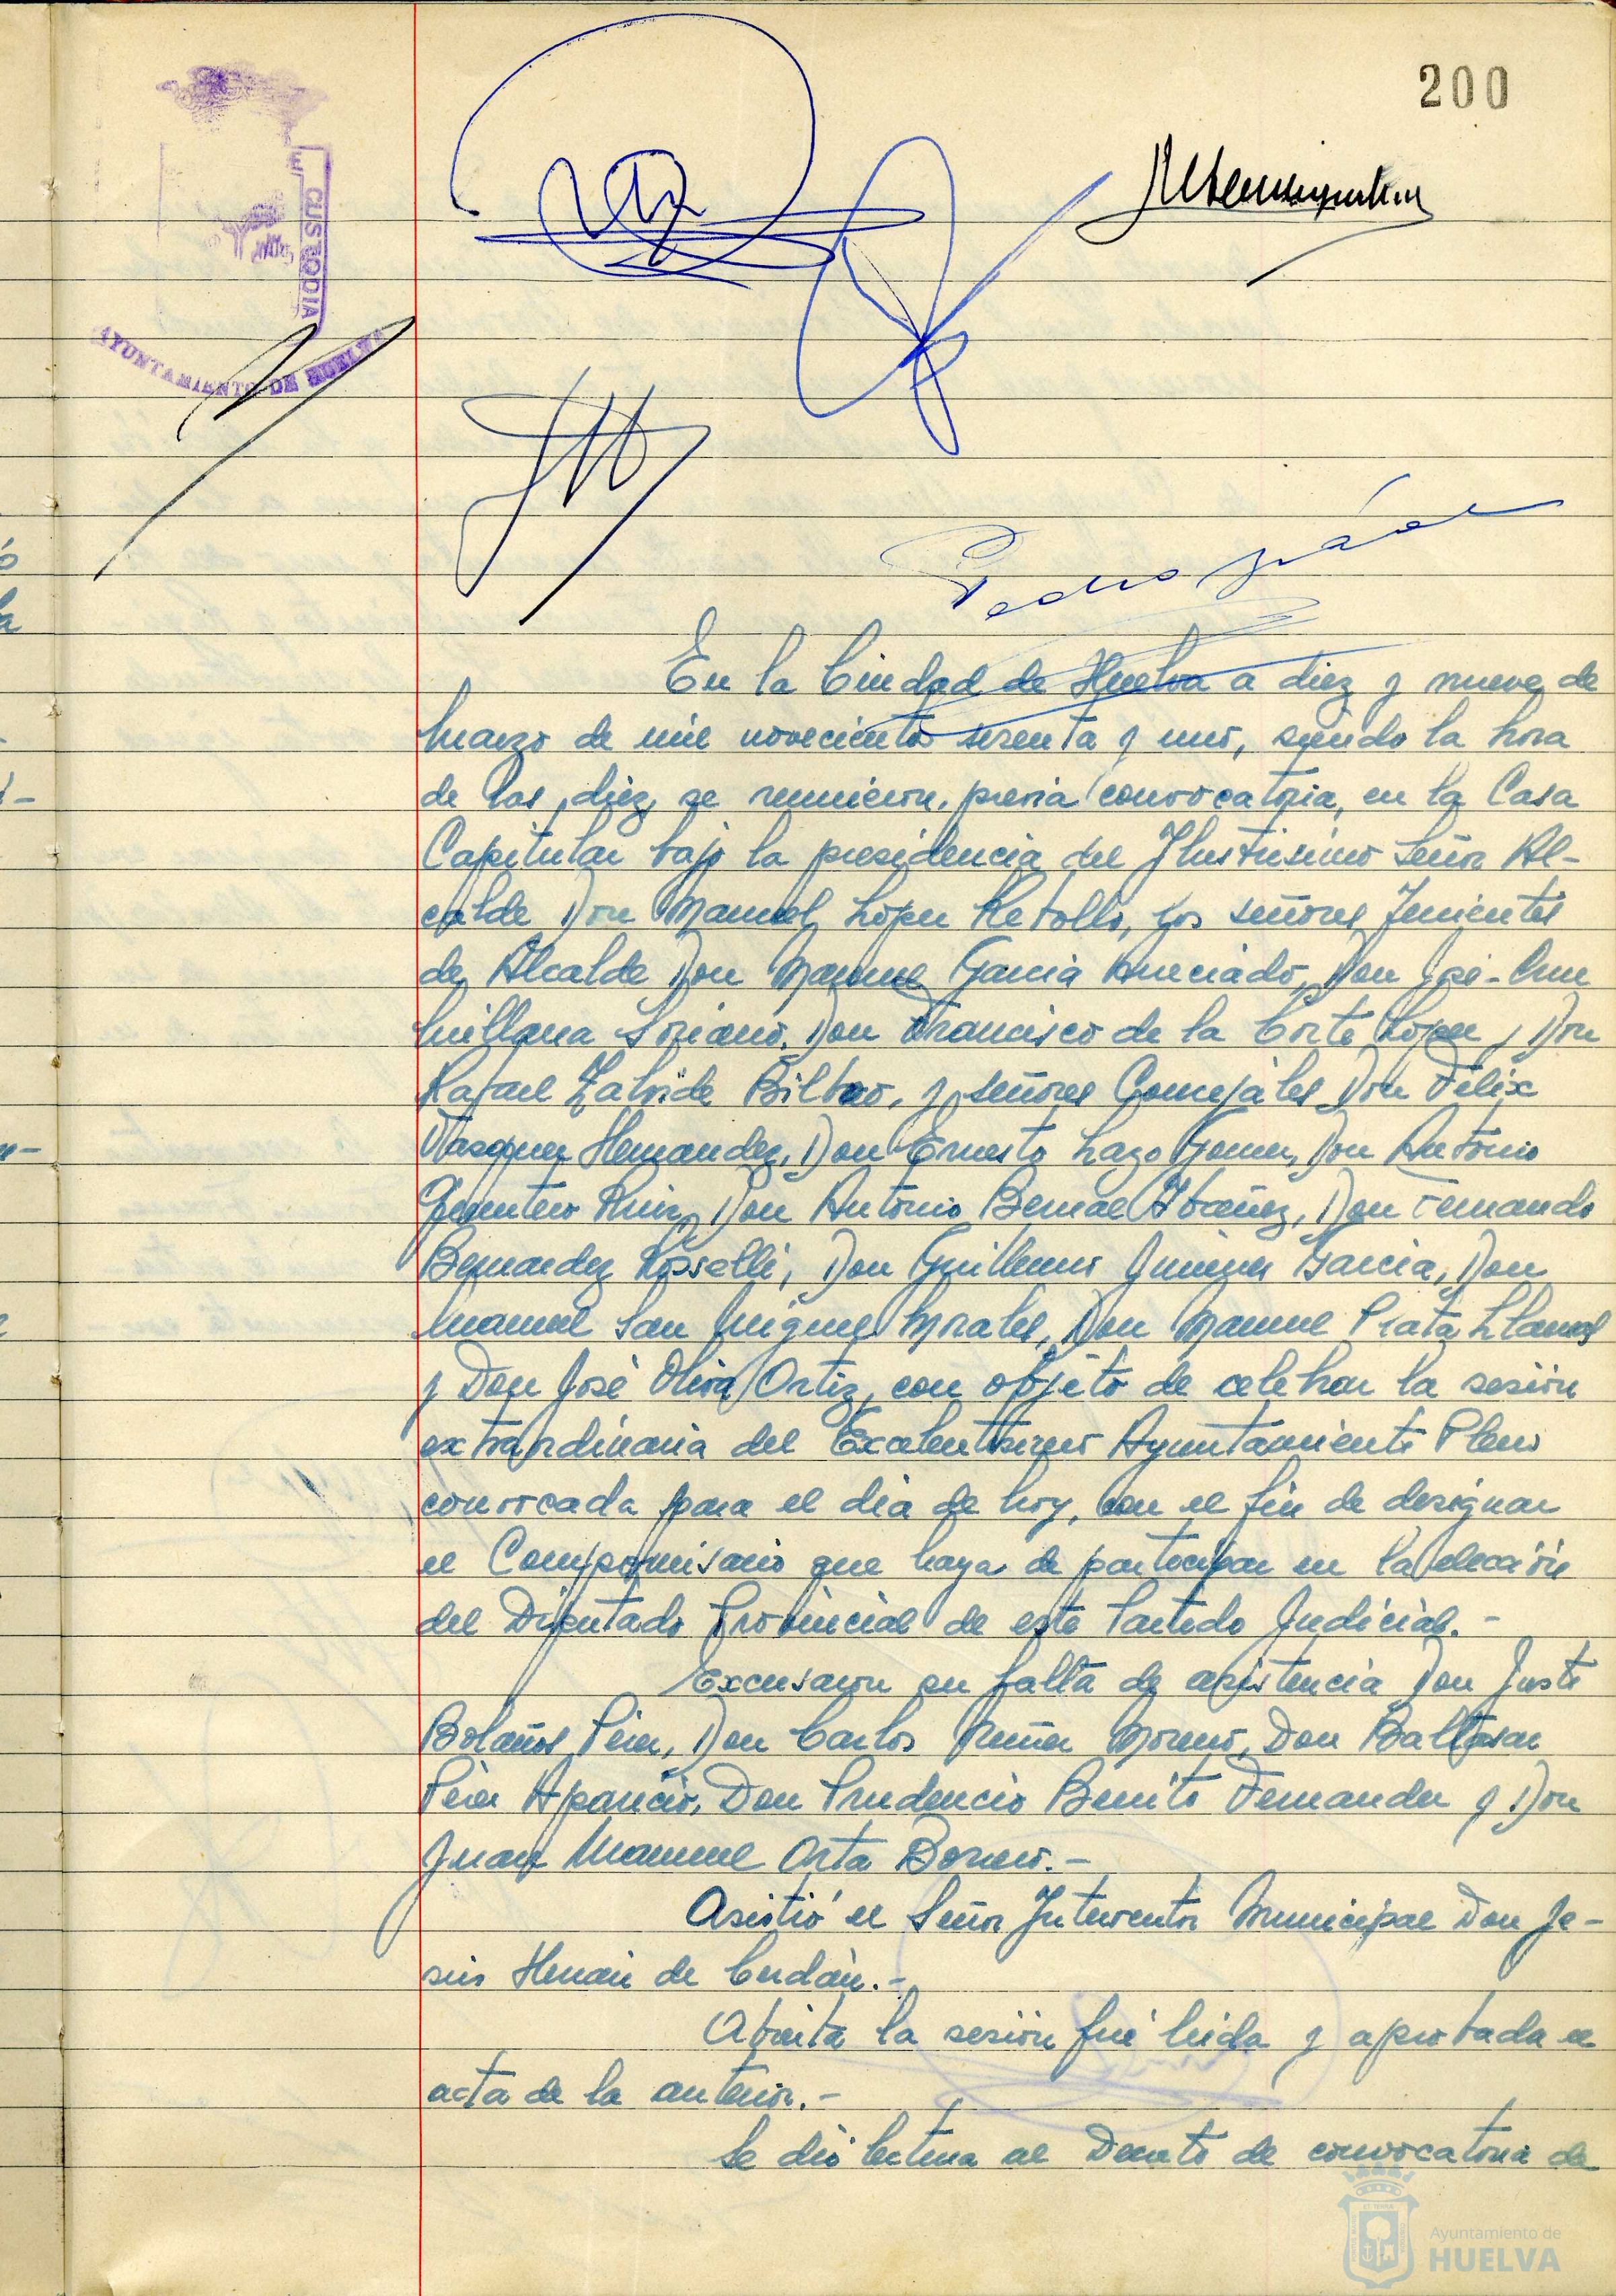 200
E CUSTODIA
AYUNTAMIENTO DE HUELVA
En la Ciudad de Huelva a diez y nueve de
Marzo de mil novecientos sesenta y uno, siendo la hora
de las diez, se reunieron, previa convocatoria, en la Casa
Capitular bajo la presidencia del Ilustrisimo Señor Al-
calde Don Manuel Lopez Rebollo, los señores Tenientes
de Alcalde Don Manuel Garcia Aneciado, Don José-Luis
Millana Soriano, Don Francisco de la Corte Lopez y Don
Rafael Zalvide Bilbao, y señores Concejales Don Felix
Vazquez Hernandez, Don Ernesto Lazo Gomez, Don Antonio
Quintero Ruiz, Don Antonio Bernal Ibañez, Don Fernando
Bernardez Rosselli, Don Guillermo Jimenez Garcia, Don
Manuel San Miguel Morales, Don Manuel Plata Llamas
y Don José Oliva Ortiz, con objeto de celebrar la sesión
extraordinaria del Excelentisimo Ayuntamiento Pleno
convocada para el dia de hoy, con el fin de designar
el Compromisario que haya de participar en la elección
del Diputado Provincial de este Partido Judicial.-
Excusaron su falta de asistencia Don Justo
Bolaños Perez, Don Carlos Nuñez Moreno, Don Baltasar
Perez Aparicio, Don Prudencio Benito Fernandez y Don
Juan Manuel Orta Borrero.-
Asistió el Señor Interventor Municipal Don Je-
sús Hernán de Cerdán.-
Abierta la sesión fué leida y aprobada el
acta de la anterior.-
Se dió lectura al Decreto de convocatoria de
Ayuntamiento de
HUELVA